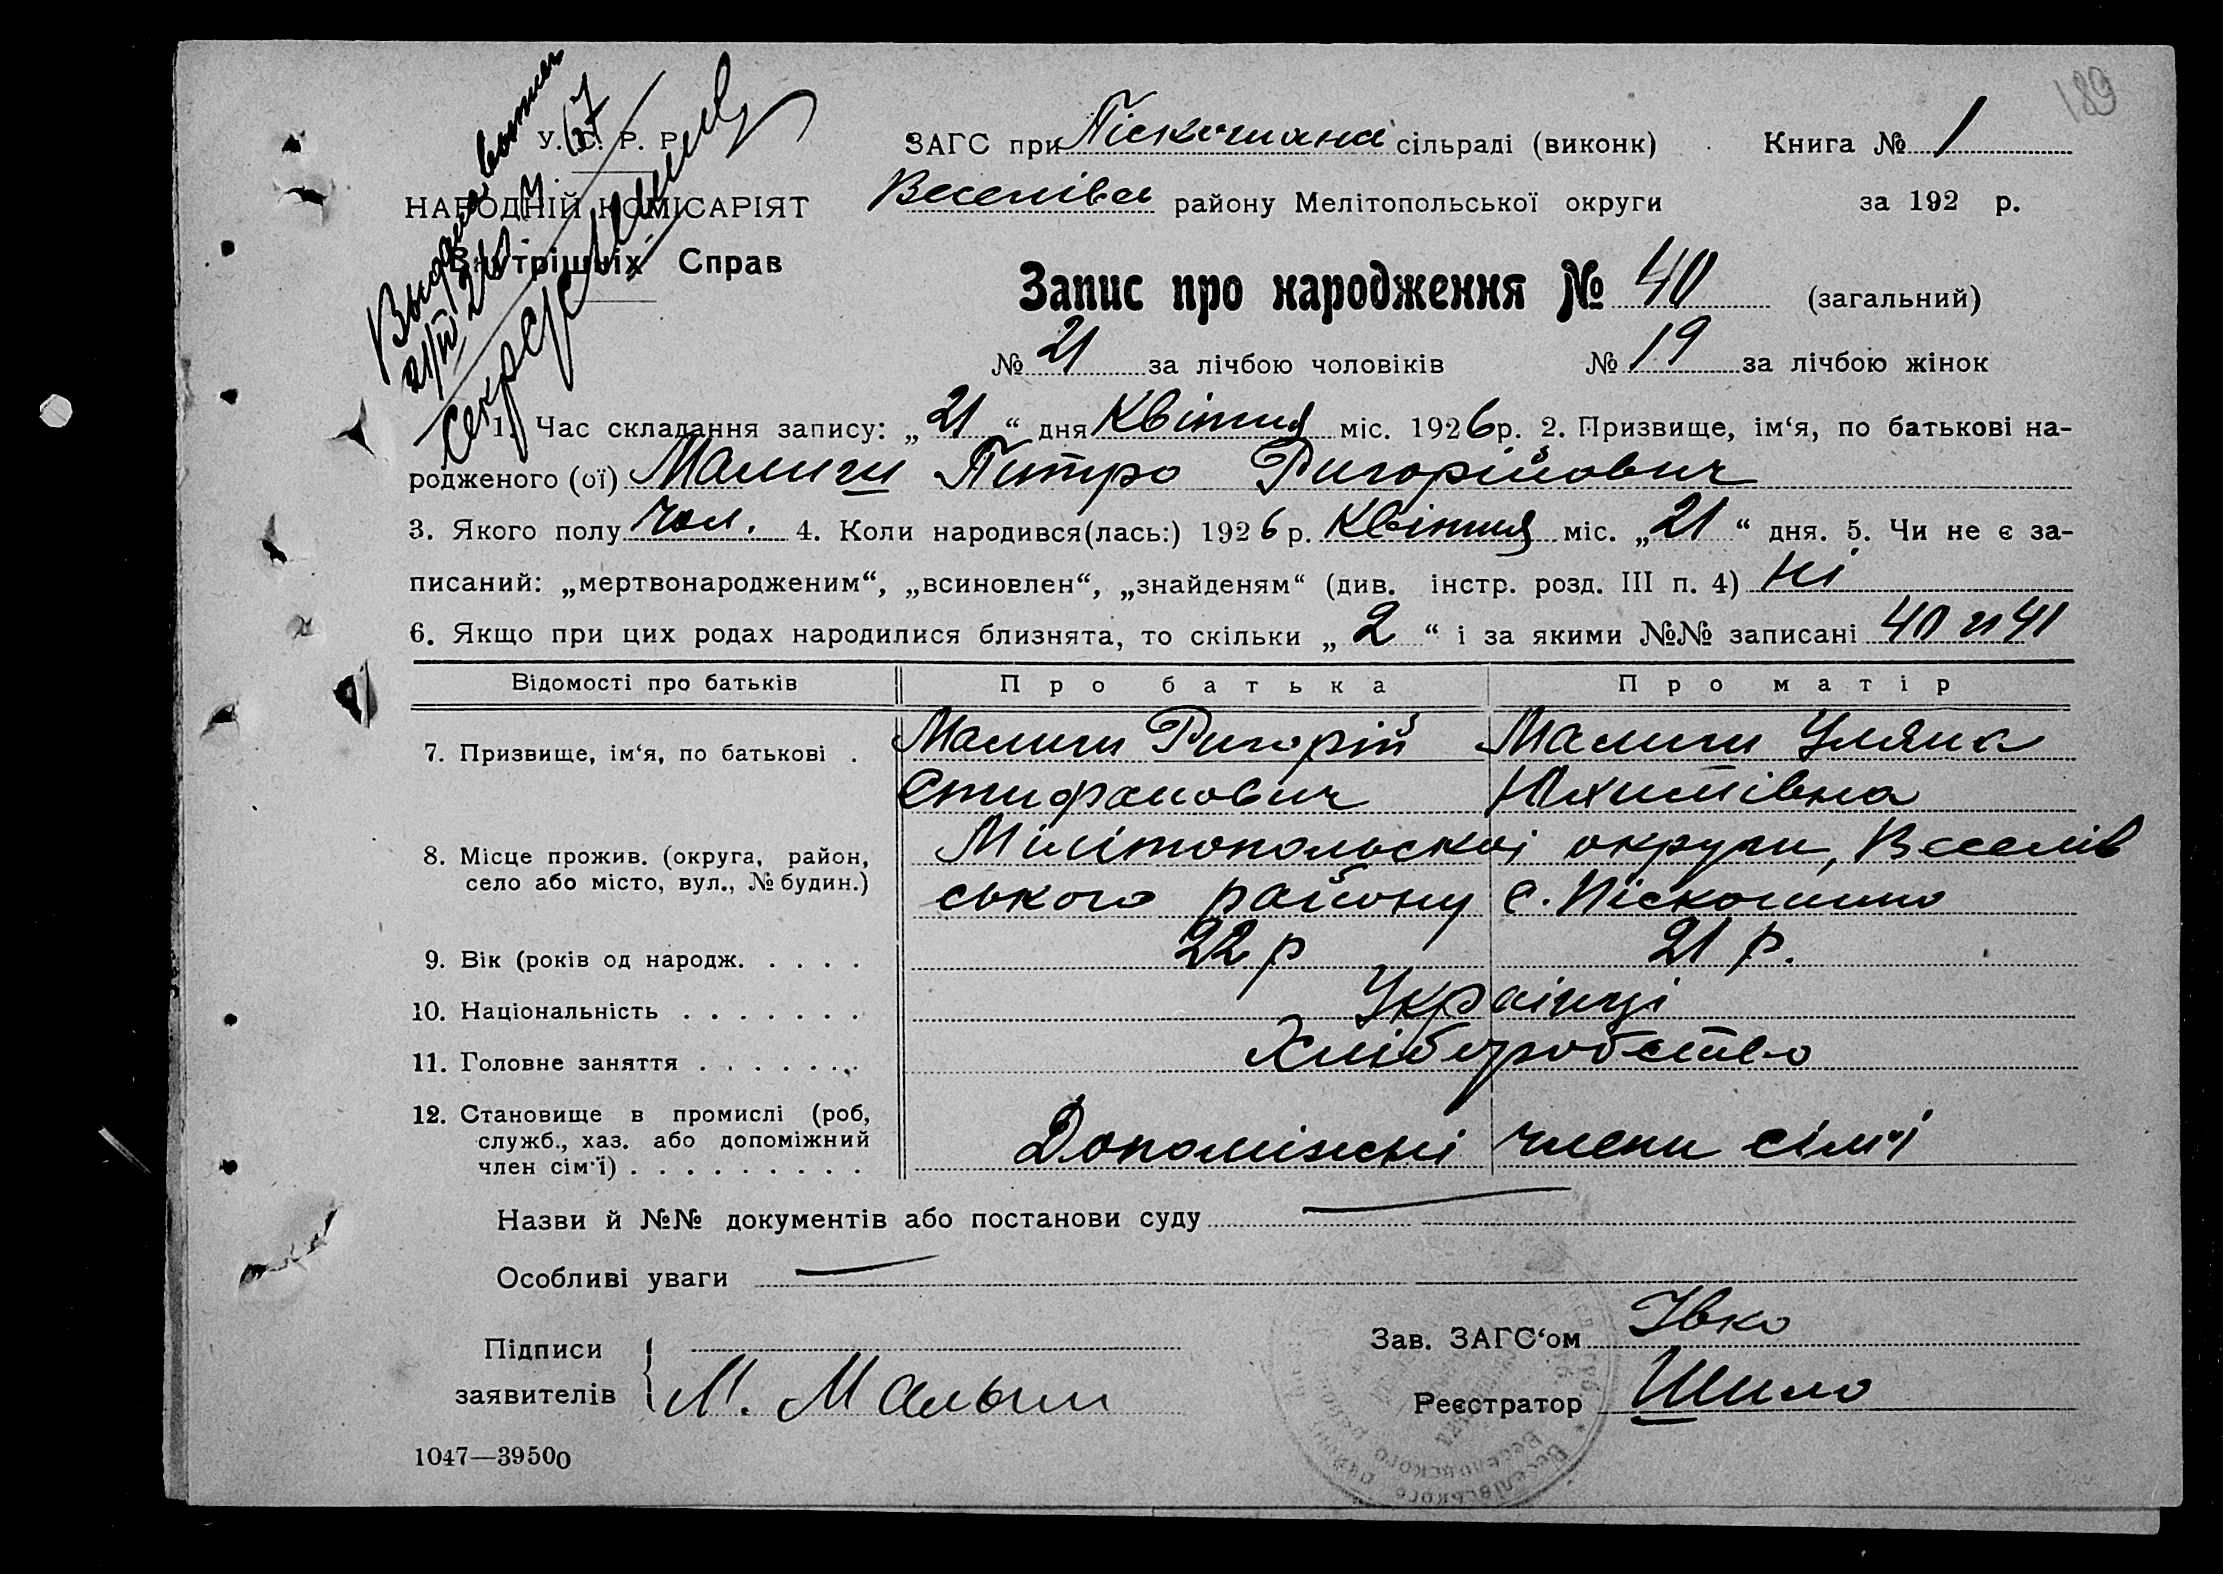 189
У. С. Р. Р.
НАРОДНІЙ КОМІСАРІЯТ
Внутрішніх Справ
67
21/IV 26
ЗАГС при Піскошина сільраді (виконк) Книга № 1
Веселівс району Мелітопольської округи за 192 р.
Запис про народження № 40 (загальний)
№ 21 за лічбою чоловіків № 19 за лічбою жінок
1. Час складання запису: „21“ дня Квітня міс. 1926 р. 2. Призвище, ім‘я, по батькові на-
родженого (ої) Малиги Питро Григорійович
3. Якого полу Чол. 4. Коли народився(лась:) 1926 р. Квітня міс. „21“ дня. 5. Чи не є за-
писаний: „мертвонародженим“, „всиновлен“, „знайденям“ (див. інстр. розд. III п. 4) Ні
6. Якщо при цих родах народилися близнята, то скільки „2“ і за якими №№ записані 40 и 41
Відомості про батьків Про батька Про матір
7. Призвище, ім‘я, по батькові . Малиги Григорій Малиги Уляна
Стифанович Юхимівна
8. Місце прожив. (округа, район, Мілітопольскоі округи, Веселів
село або місто, вул., № будин.) ського району с. Піскошино
9. Вік (років од народж. . . . . 22 р 21 р.
10. Національність . . . . . . . Украінці
11. Головне заняття . . . . . . . Хліборобство
12. Становище в промислі (роб, Допоміжні члени сімі
служб., хаз. або допоміжний
член сім‘ї) . . . . . . . . .
Назви й №№ документів або постанови суду
Особливі уваги
Підписи
заявителів
Зав. ЗАГС‘ом Івко
Реєстратор Шило
1047—39500